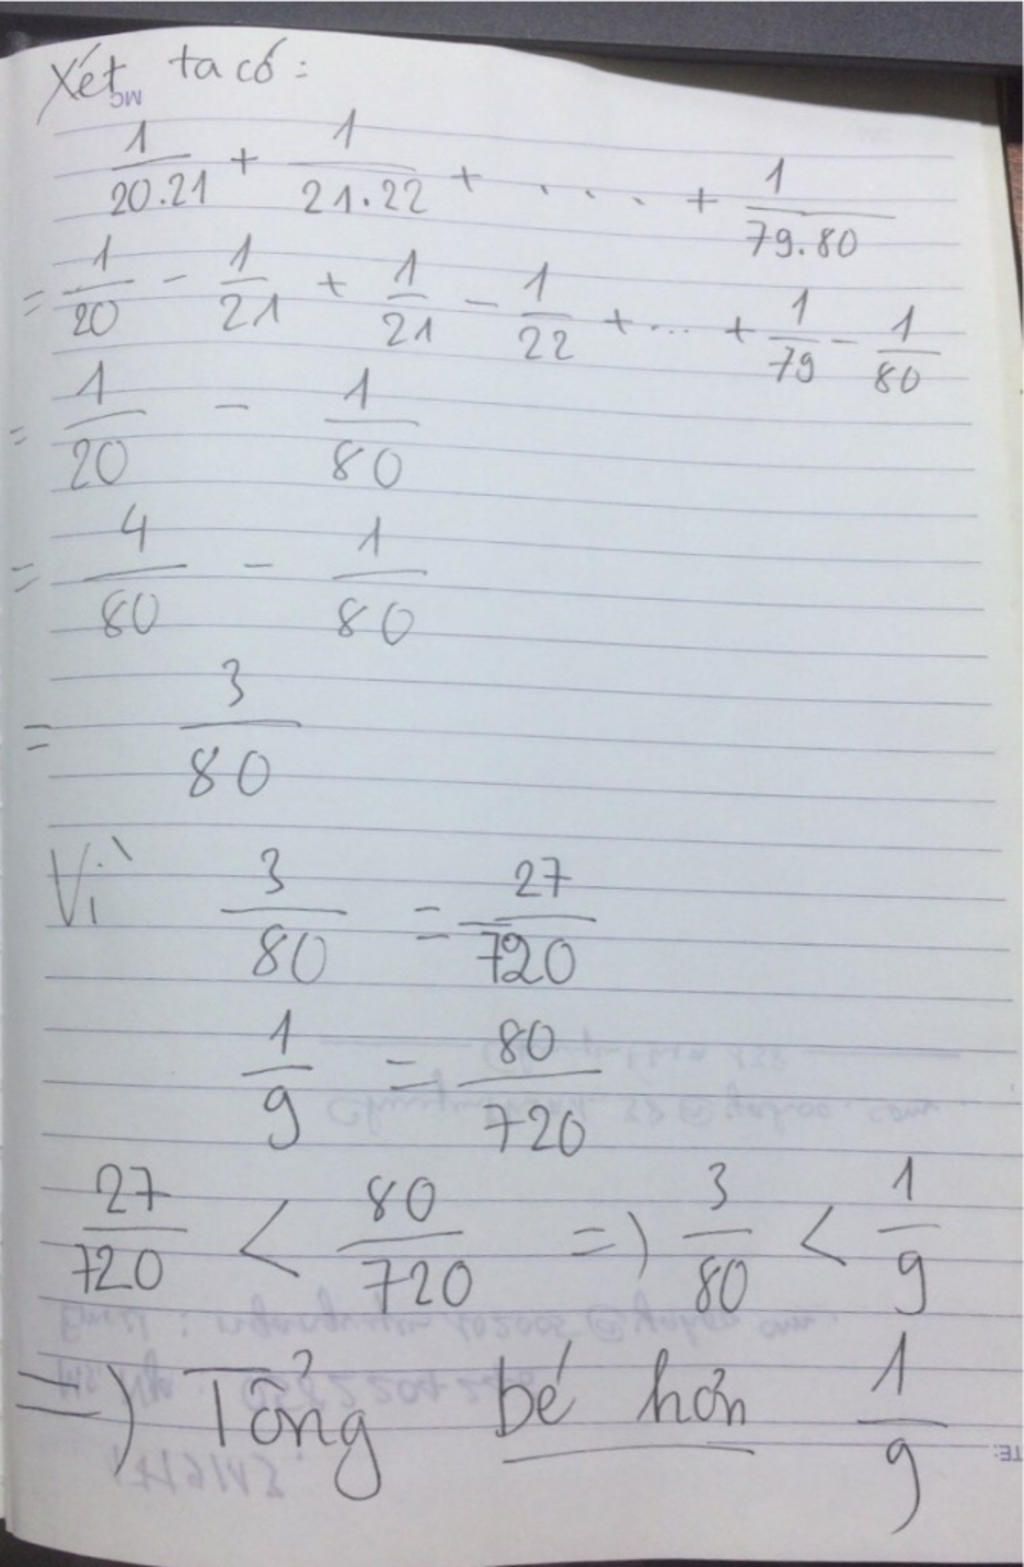 Xét ta có:
1/20.21 + 1/21.22 + ..... + 1/79.80
= 1/20 - 1/21 + 1/21 - 1/22 + ... + 1/79 - 1/80
= 1/20 - 1/80
= 4/80 - 1/80
= 3/80
Vì 3/80 = 27/720
1/9 = 80/720
27/720 < 80/720 => 3/80 < 1/9
=> Tổng bé hơn 1/9